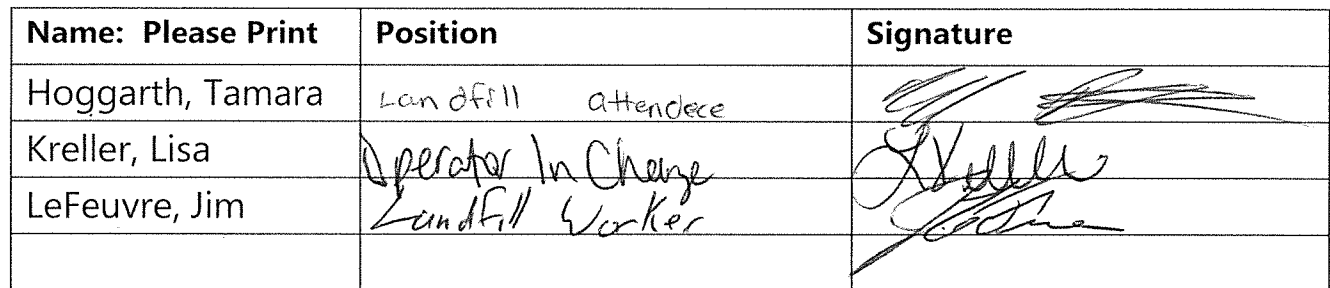 Name: Please Print Position Signature
Hoggarth, Tamara Landfill attendece
Kreller, Lisa Operator In Charge
LeFeuvre, Jim Landfill Worker